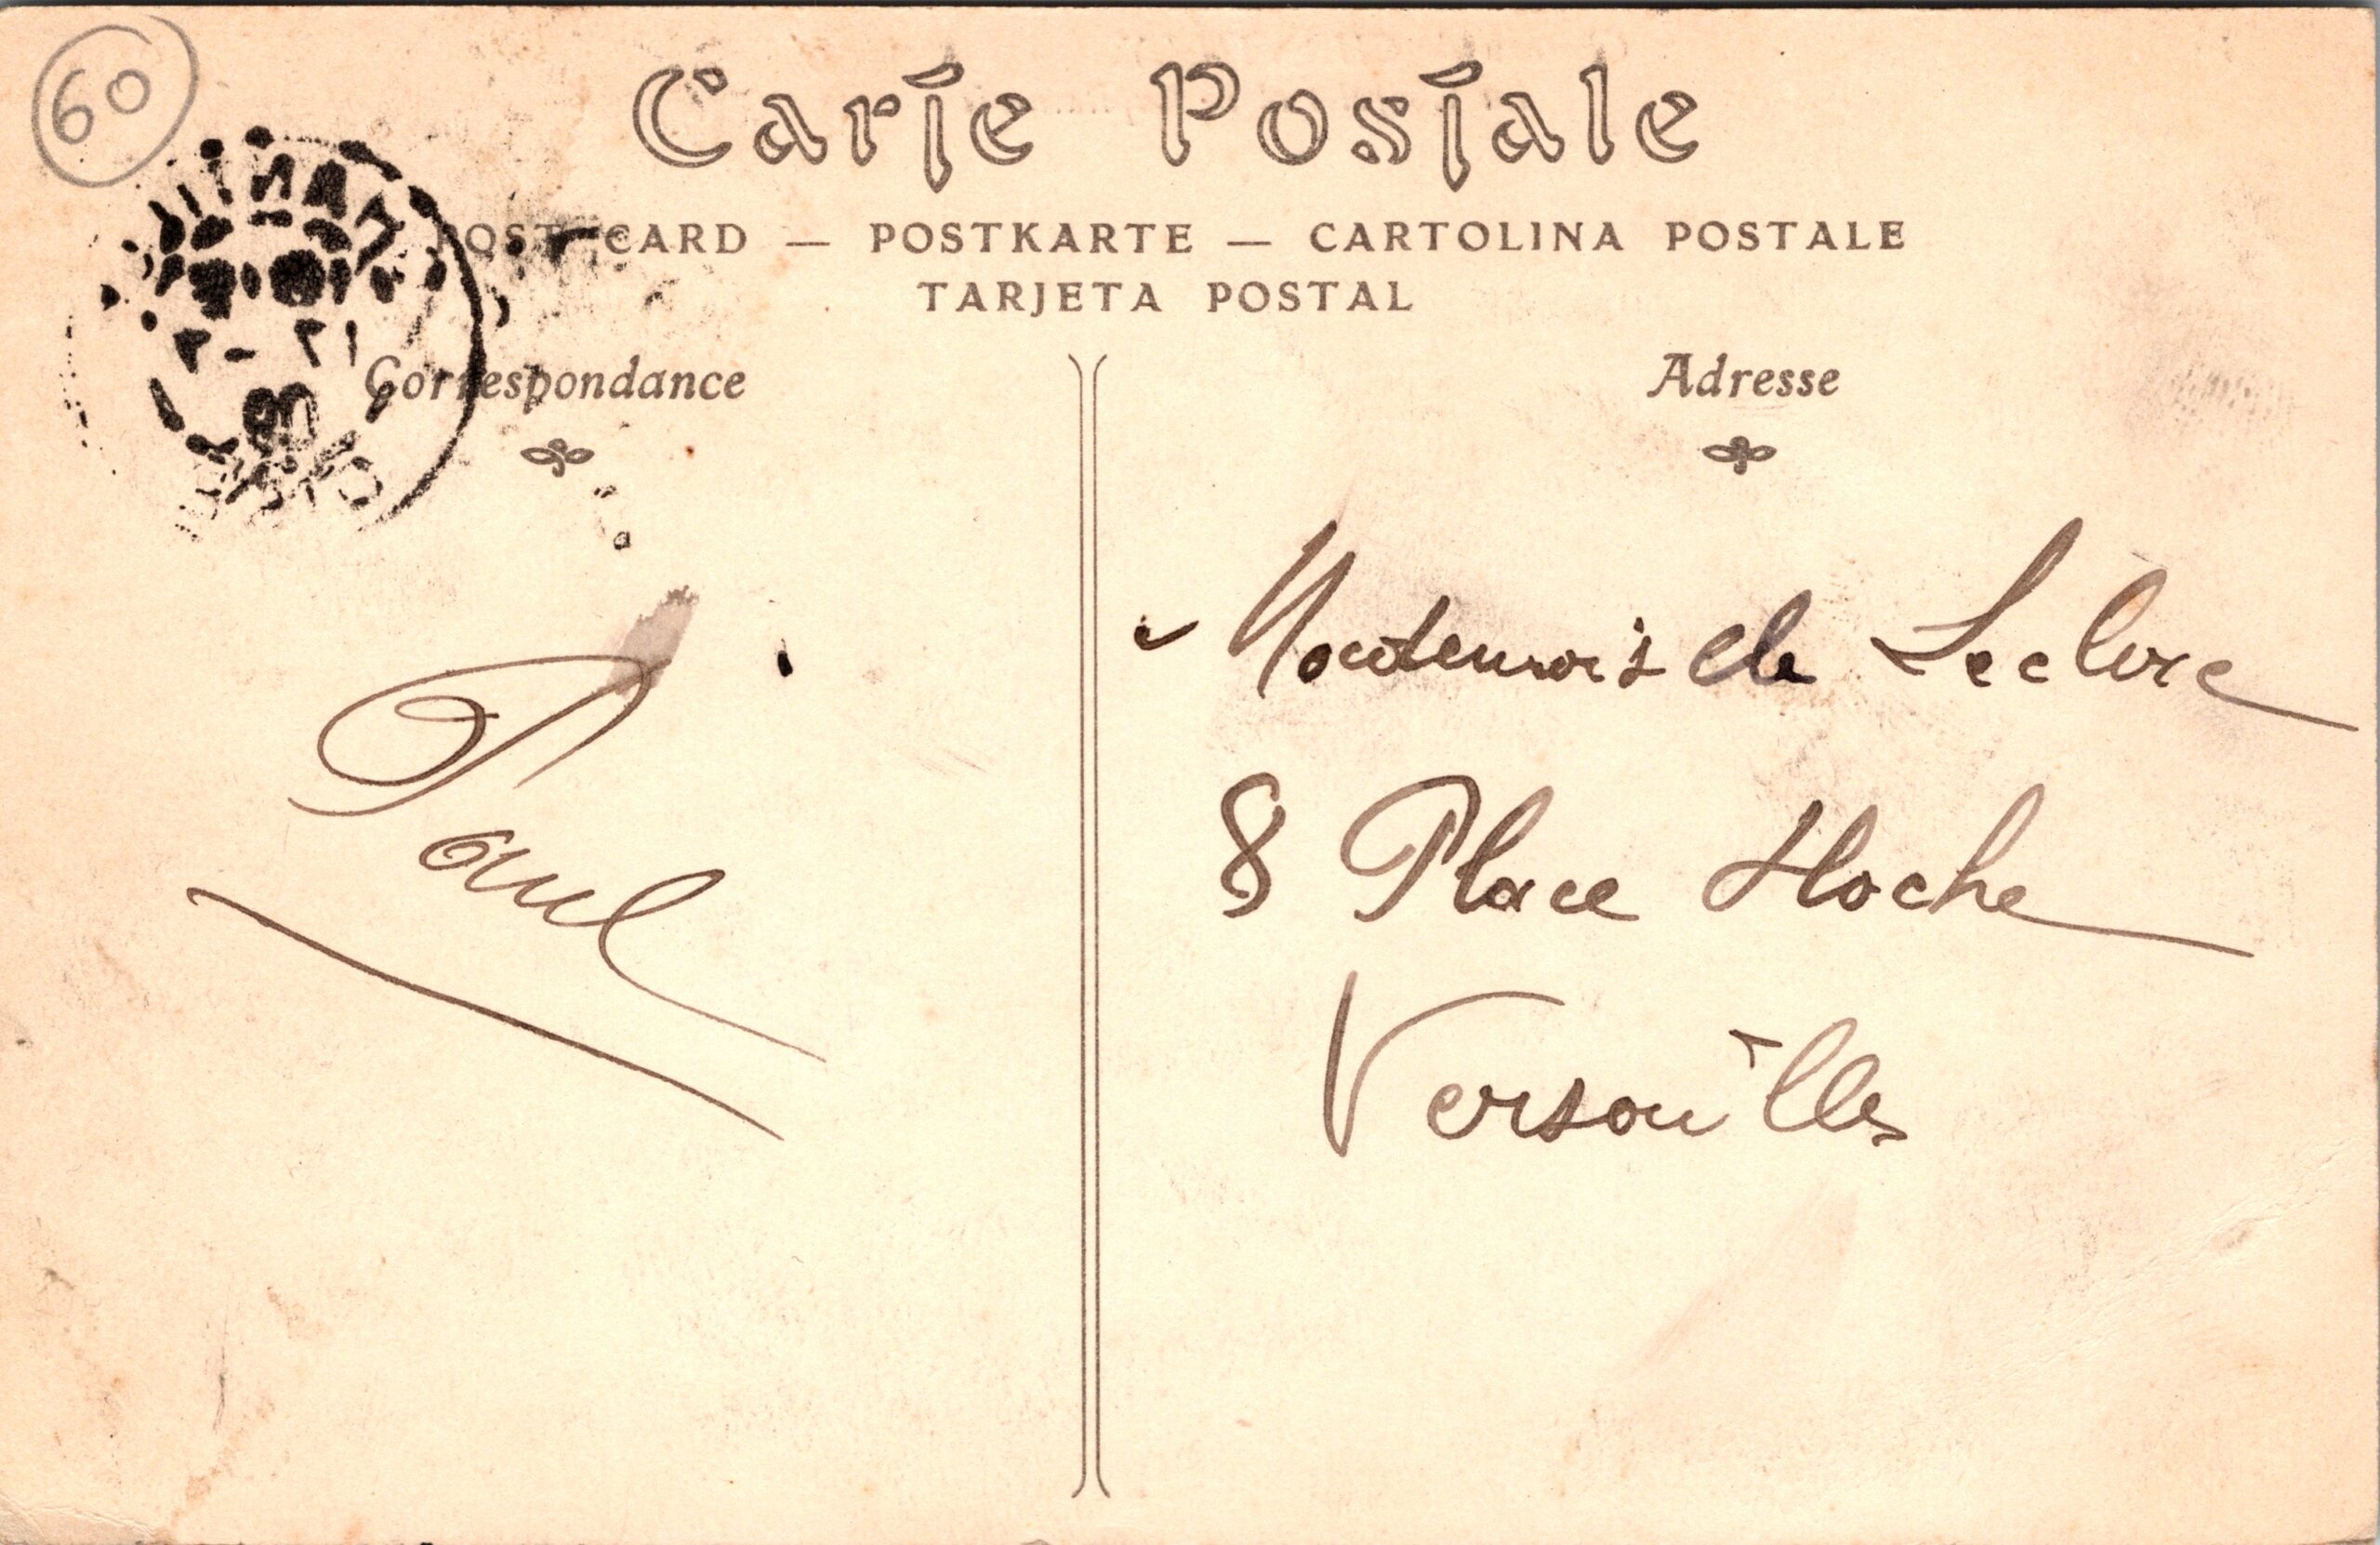 60
Carte Postale
POST CARD — POSTKARTE — CARTOLINA POSTALE
TARJETA POSTAL
Correspondance
Adresse
Paul
Mademoiselle Leclerc
8 Place Hoche
Versailles